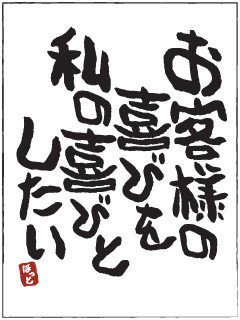 お客様の
喜びを
私の喜びと
したい
ほっと